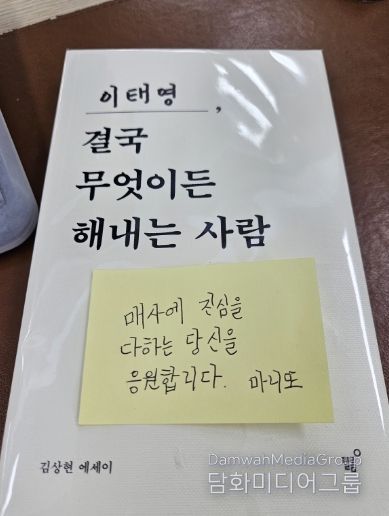 이태영,
결국
무엇이든
해내는 사람
매사에 진심을
다하는 당신을
응원합니다. 마니또
김상현 에세이
DamwhaMediaGroup
담화미디어그룹